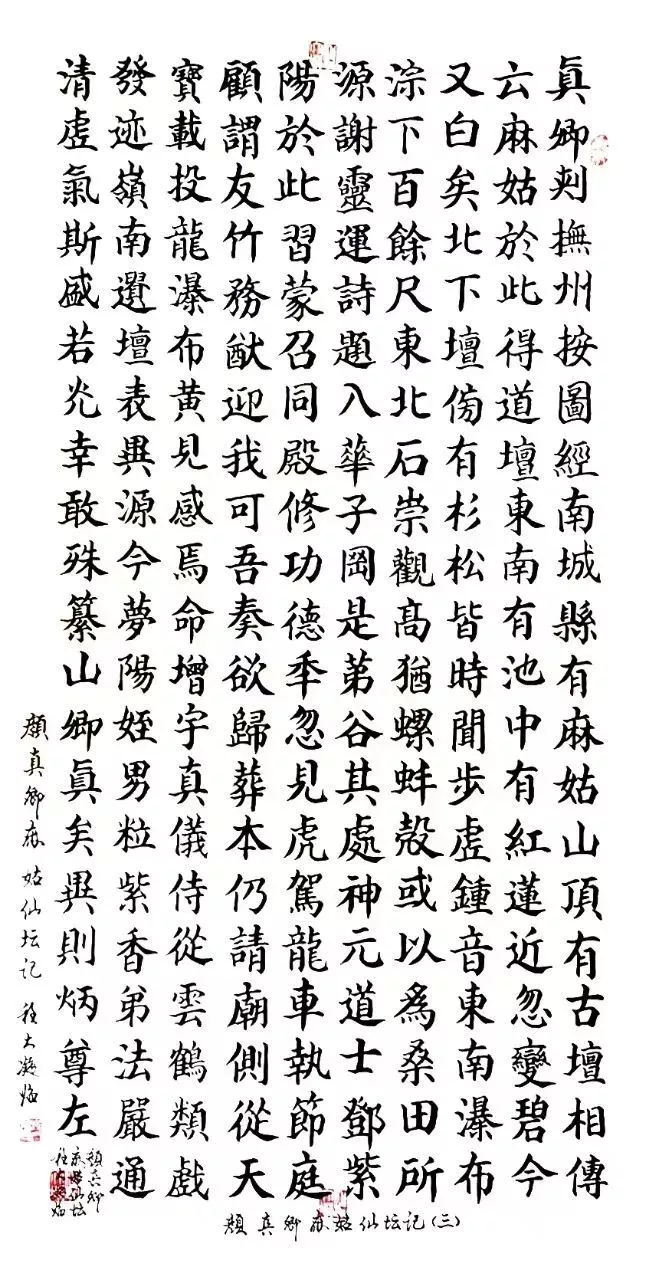 真卿刾撫州按圖經南城縣有麻姑山頂有古壇相傳
云麻姑於此得道壇東南有池中有紅蓮近忽變碧今
又白矣北下壇傍有杉松皆時聞步虛鍾音東南瀑布
淙下百餘尺東北石崇觀高猶螺蚌殼或以為桑田所
源謝靈運詩題入華子岡是第谷其處神元道士鄧紫
陽於此習蒙召同殿修功德季忽見虎駕龍車執節庭
顧謂友竹務猷迎我可吾奏欲歸葬本仍請廟側從天
寶載投龍瀑布黃見感焉命增宇真儀侍從雲鶴類戲
發迹嶺南選壇表異源今夢陽姪男粒紫香弟法嚴通
清虛氣斯盛若幸敢殊纂山卿真矣異則炳尊左
颜真卿麻姑仙坛记 大凝临
颜真卿
麻姑仙坛
颜真卿麻姑仙坛记(三)